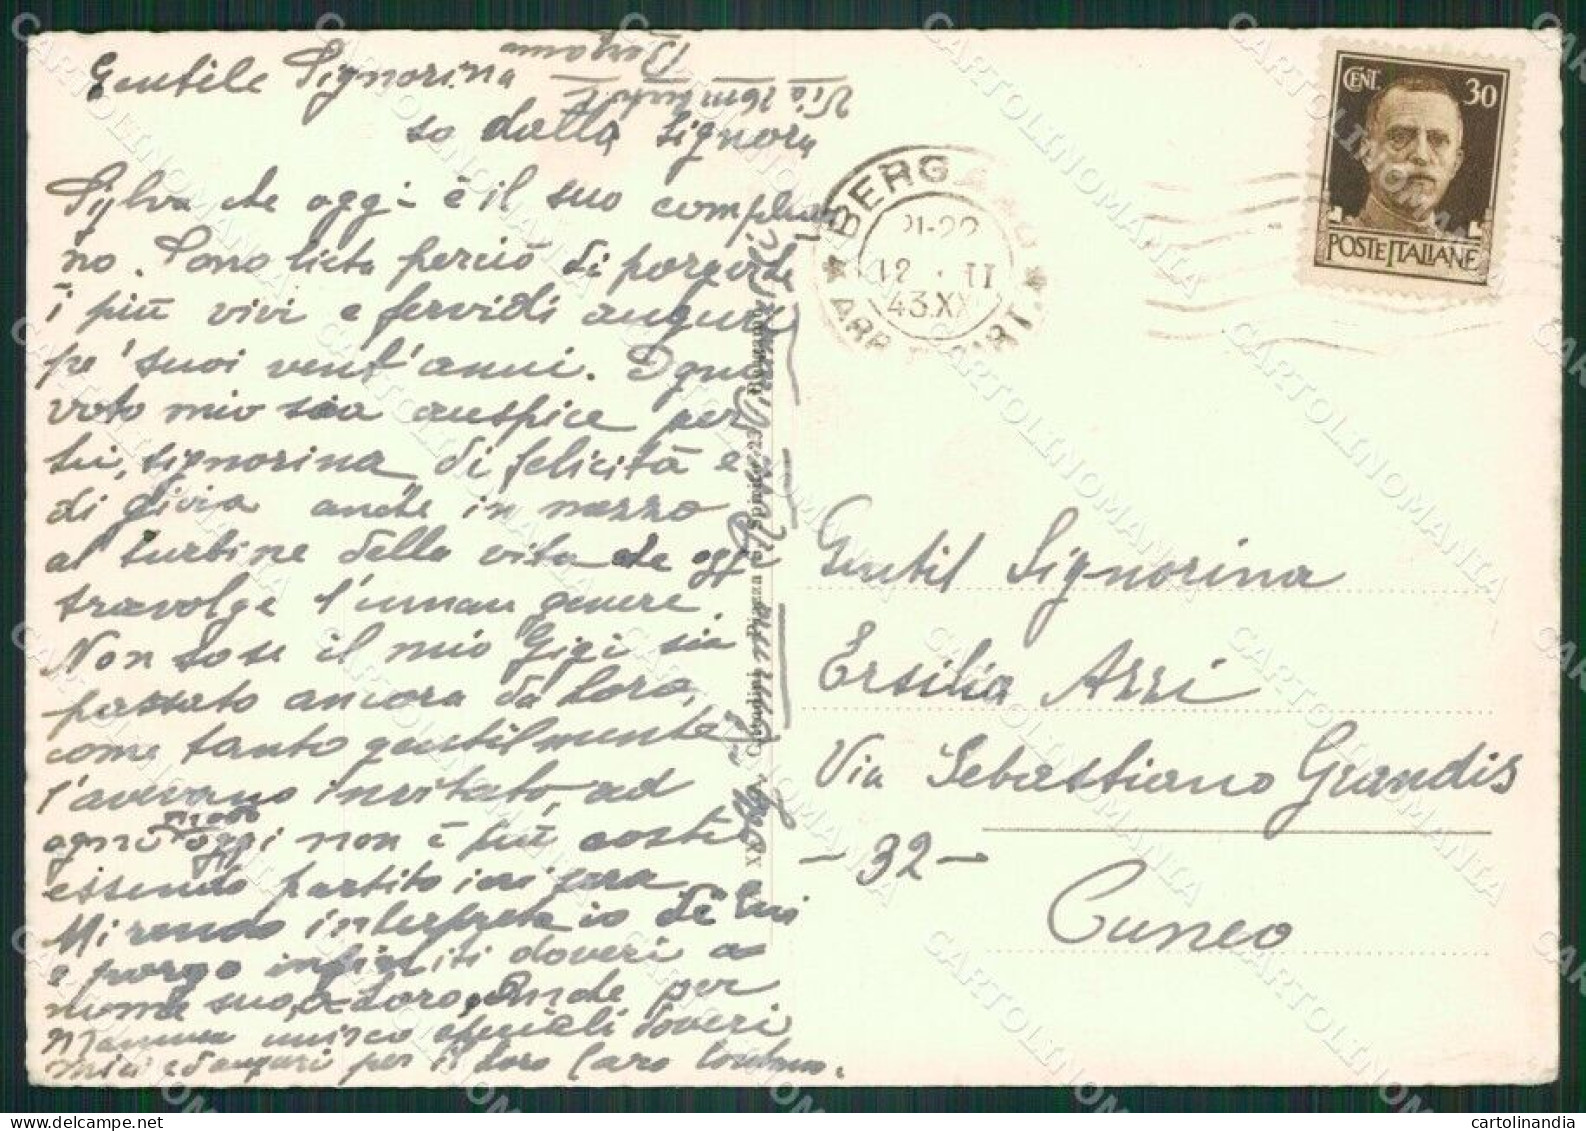 Gentile Signorina
so dalla Signora
Sylva che oggi è il suo complean
no. Sono lieta perciò di porgerle
i più vivi e fervidi auguri
pe' suoi vent'anni. Ogni
voto mio sia auspice per
Lei, signorina, di felicità e
di gioia anche in mezzo
al turbine della vita che oggi
travolge l'uman genere.
Non so se il mio Gigi sia
passato ancora da Loro,
come tanto gentilmente
l'avevano invitato, ad
ogni modo oggi non è più costì
essendo partito ieri sera.
Mi rendo interprete io di Lui
e porgo infiniti doveri a
nome suo, a Loro. Anche per
Mamma unisco
miei ed auguri per il Loro Caro
Via
Bergamo
BERGAMO
21-22
12 . II
43.XX
ARR
CENT. 30
POSTE ITALIANE
Gentil Signorina
Ersilia Arri
Via Sebastiano Grandis
- 32 -
Cuneo
Piazza S. Spirito, 23
CARTOLINOMANIA
cartolinandia